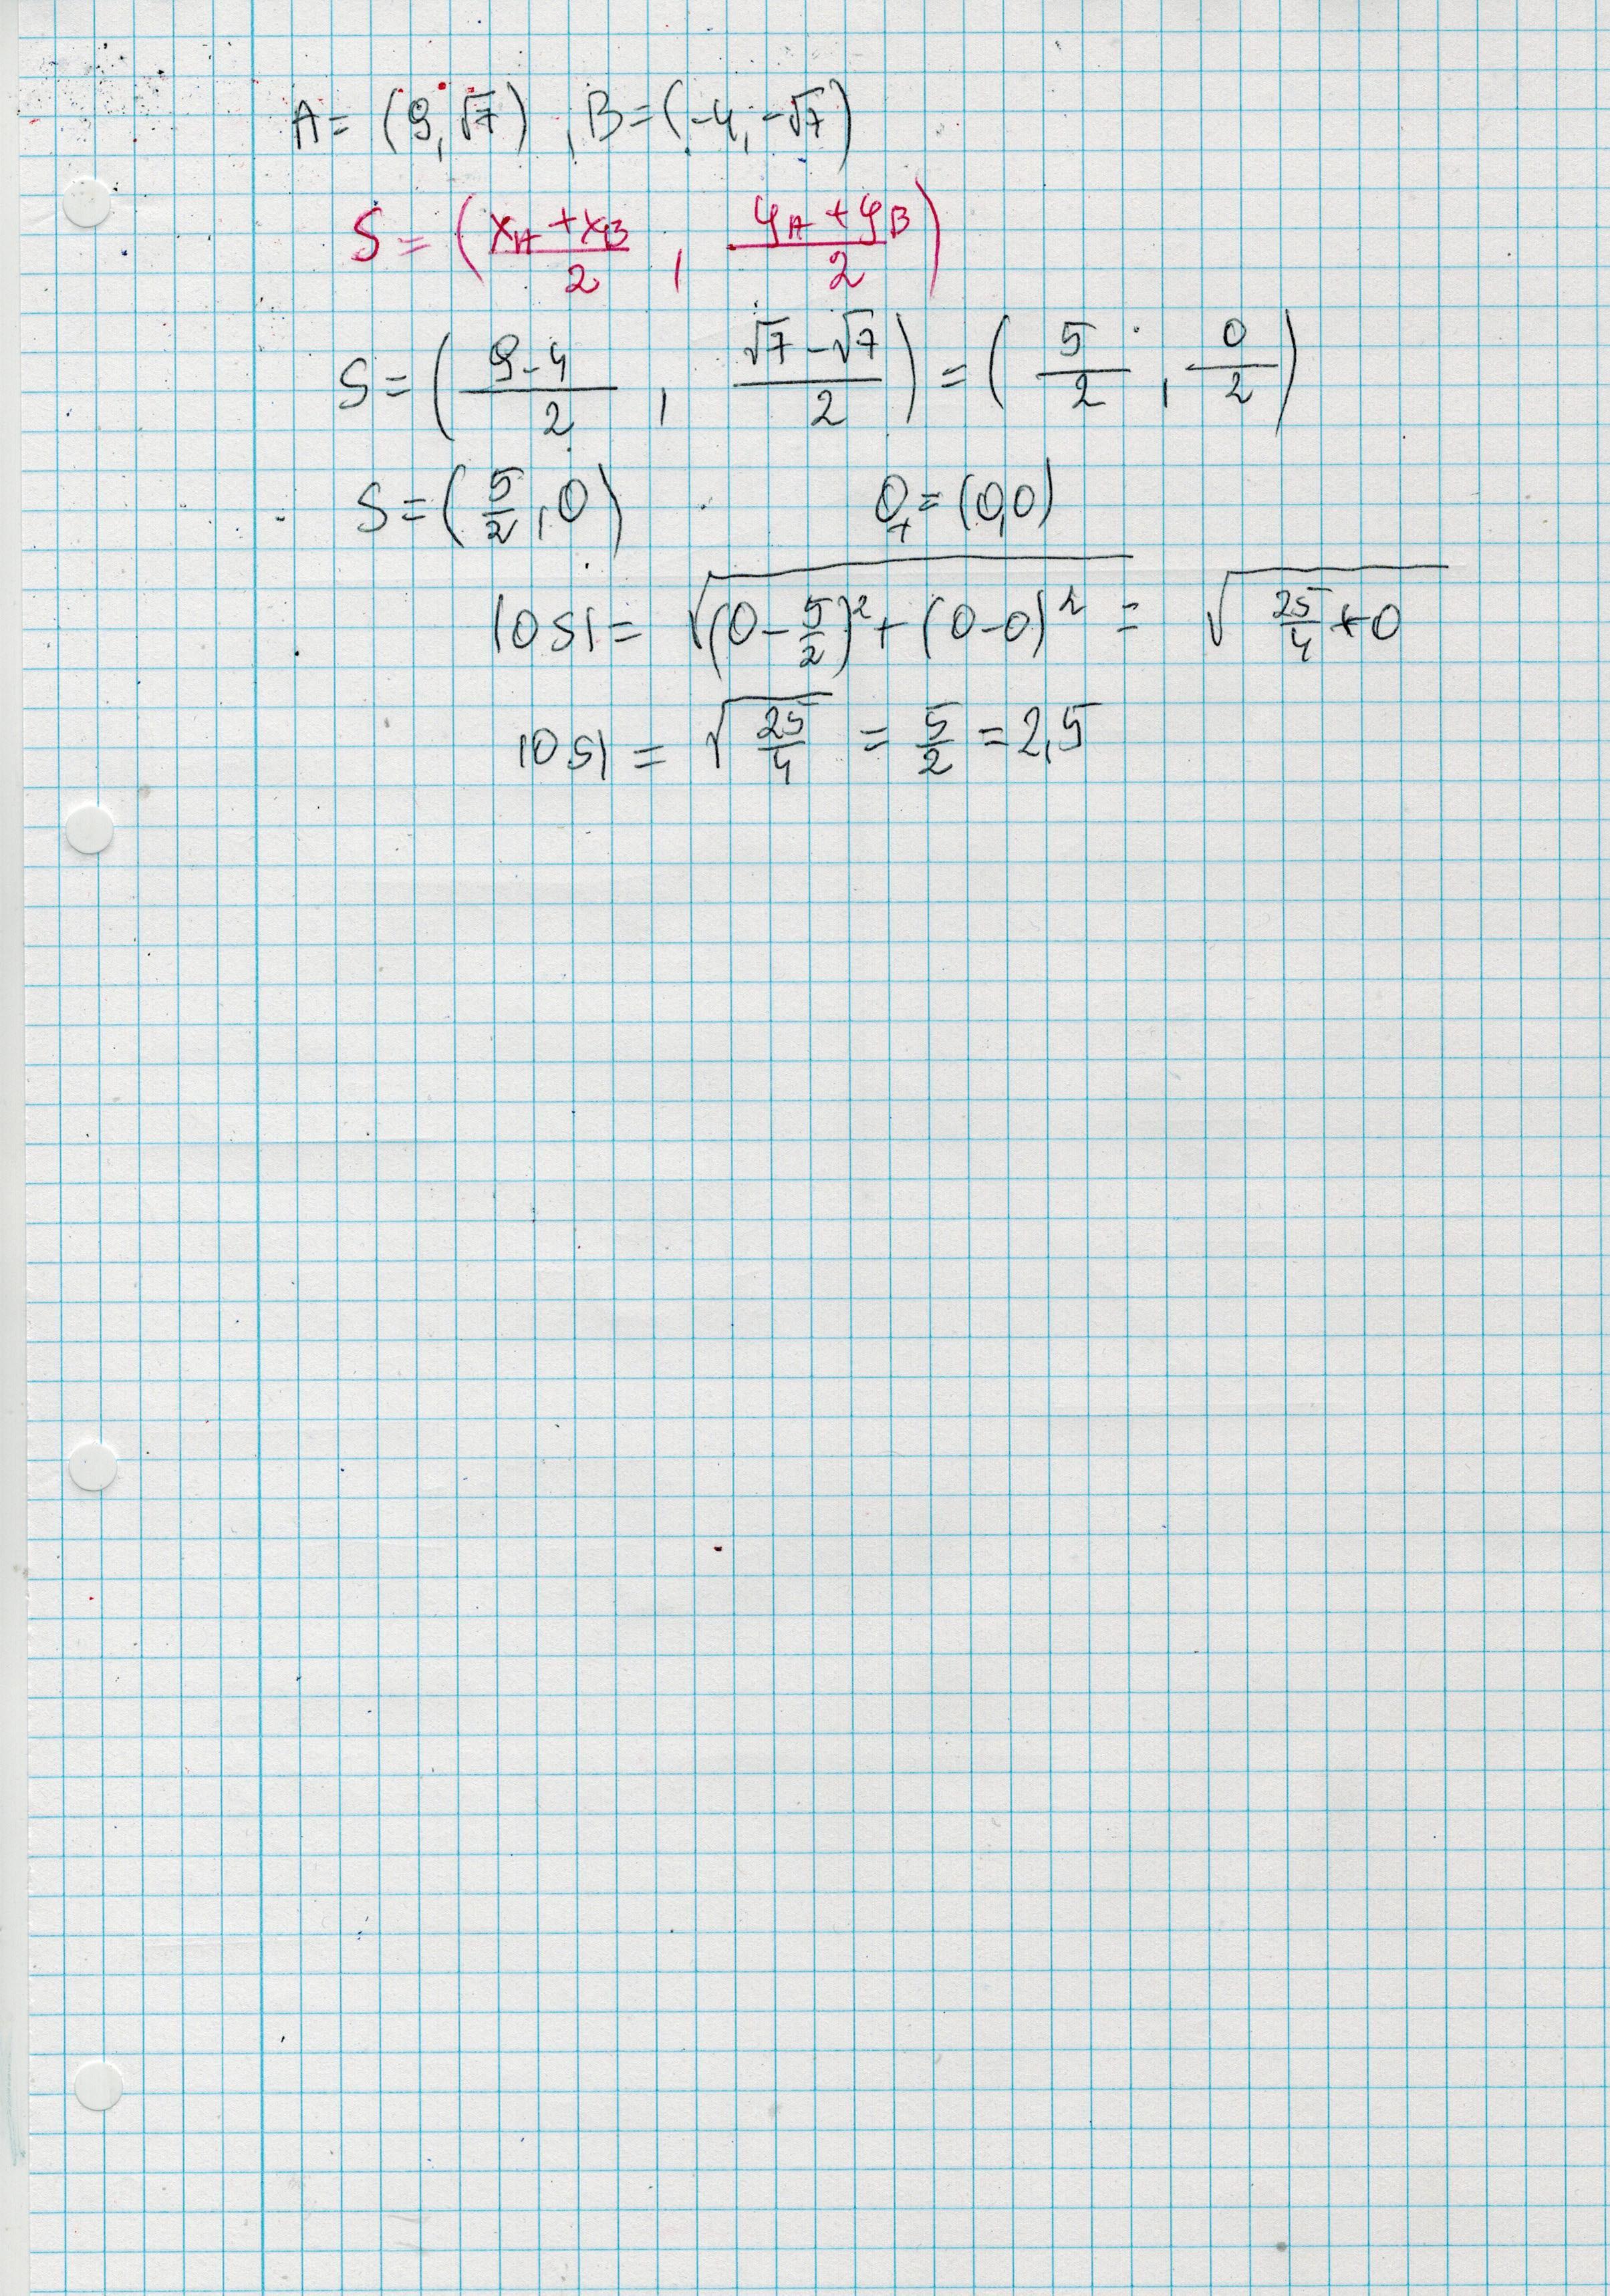 A = (9, √7) , B = (-4, -√7)
S = ( (x_A + x_B)/2 , (y_A + y_B)/2 )
S = ( (9-4)/2 , (√7 - √7)/2 ) = ( 5/2 , 0/2 )
S = ( 5/2 , 0 ) O = (0,0)
|OS| = √((0 - 5/2)² + (0-0)²) = √(25/4 + 0)
|OS| = √(25/4) = 5/2 = 2,5